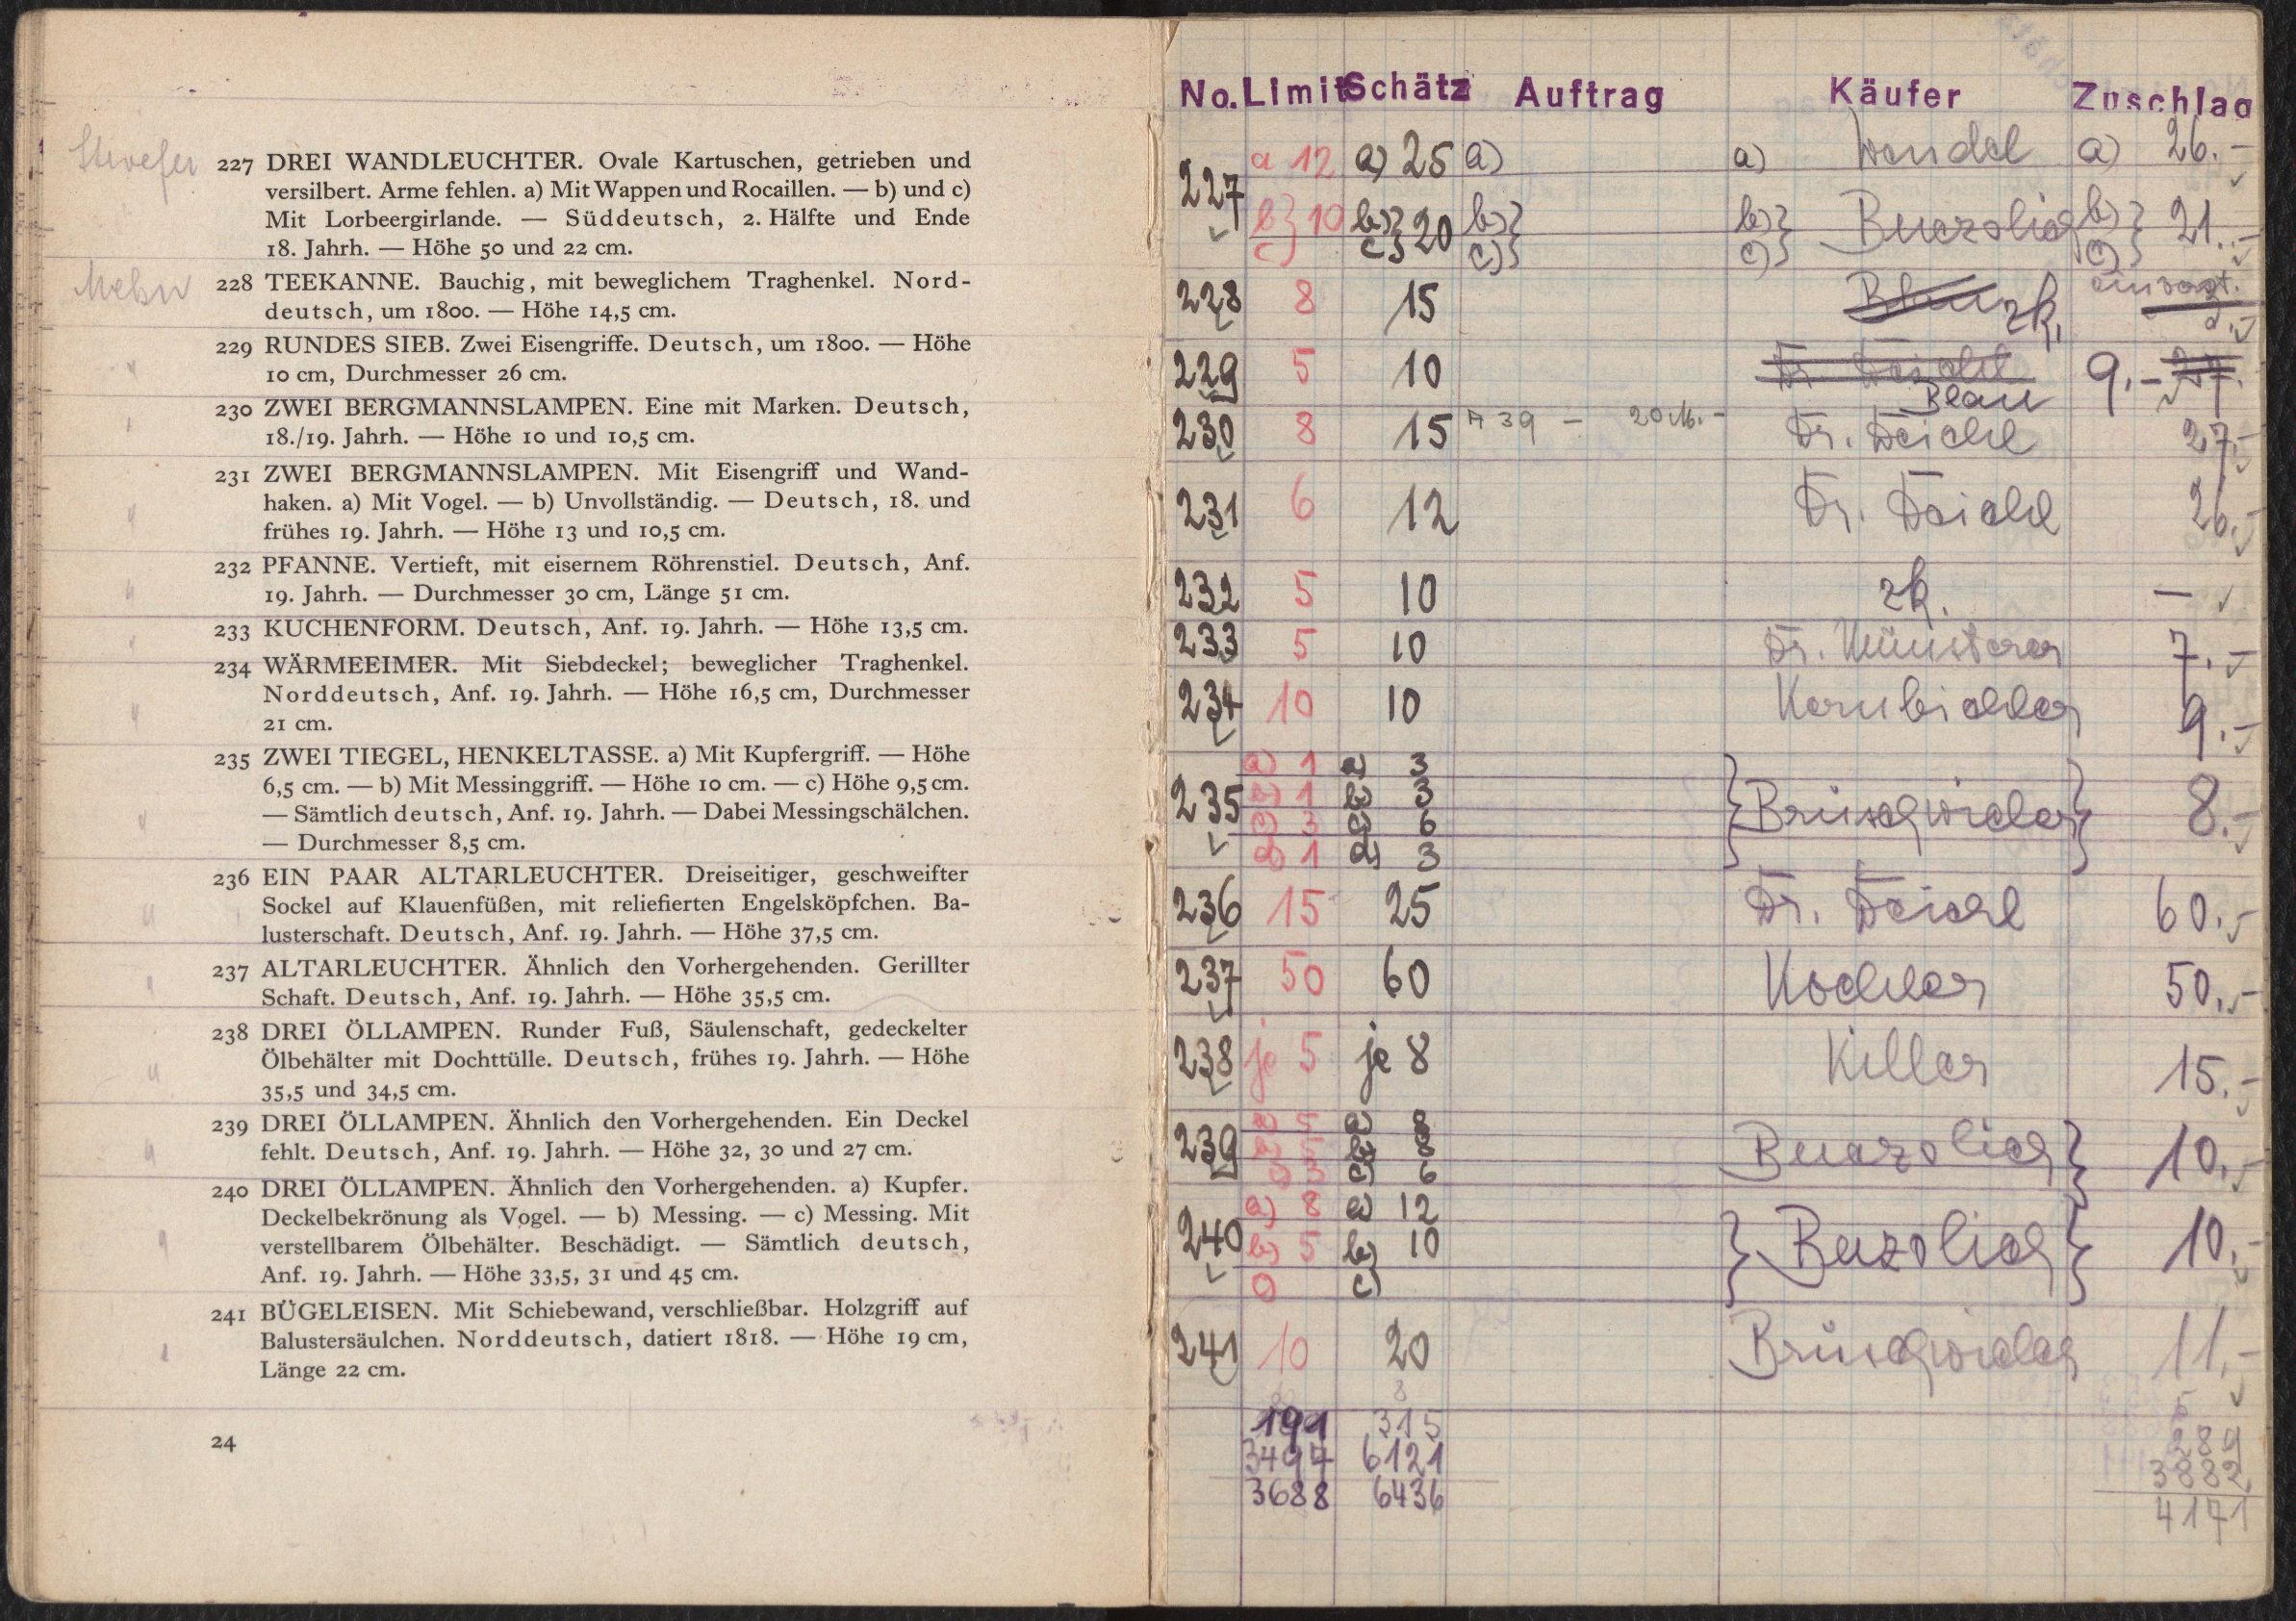 227 DREI WANDLEUCHTER. Ovale Kartuschen, getrieben und
versilbert. Arme fehlen. a) Mit Wappen und Rocaillen. — b) und c)
Mit Lorbeergirlande. — Süddeutsch, 2. Hälfte und Ende
18. Jahrh. — Höhe 50 und 22 cm.
228 TEEKANNE. Bauchig, mit beweglichem Traghenkel. Nord-
deutsch, um 1800. — Höhe 14,5 cm.
229 RUNDES SIEB. Zwei Eisengriffe. Deutsch, um 1800. — Höhe
10 cm, Durchmesser 26 cm.
230 ZWEI BERGMANNSLAMPEN. Eine mit Marken. Deutsch,
18./19. Jahrh. — Höhe 10 und 10,5 cm.
231 ZWEI BERGMANNSLAMPEN. Mit Eisengriff und Wand-
haken. a) Mit Vogel. — b) Unvollständig. — Deutsch, 18. und
frühes 19. Jahrh. — Höhe 13 und 10,5 cm.
232 PFANNE. Vertieft, mit eisernem Röhrenstiel. Deutsch, Anf.
19. Jahrh. — Durchmesser 30 cm, Länge 51 cm.
233 KUCHENFORM. Deutsch, Anf. 19. Jahrh. — Höhe 13,5 cm.
234 WÄRMEEIMER. Mit Siebdeckel; beweglicher Traghenkel.
Norddeutsch, Anf. 19. Jahrh. — Höhe 16,5 cm, Durchmesser
21 cm.
235 ZWEI TIEGEL, HENKELTASSE. a) Mit Kupfergriff. — Höhe
6,5 cm. — b) Mit Messinggriff. — Höhe 10 cm. — c) Höhe 9,5 cm.
— Sämtlich deutsch, Anf. 19. Jahrh. — Dabei Messingschälchen.
— Durchmesser 8,5 cm.
236 EIN PAAR ALTARLEUCHTER. Dreiseitiger, geschweifter
Sockel auf Klauenfüßen, mit reliefierten Engelsköpfchen. Ba-
lusterschaft. Deutsch, Anf. 19. Jahrh. — Höhe 37,5 cm.
237 ALTARLEUCHTER. Ähnlich den Vorhergehenden. Gerillter
Schaft. Deutsch, Anf. 19. Jahrh. — Höhe 35,5 cm.
238 DREI ÖLLAMPEN. Runder Fuß, Säulenschaft, gedeckelter
Ölbehälter mit Dochttülle. Deutsch, frühes 19. Jahrh. — Höhe
35,5 und 34,5 cm.
239 DREI ÖLLAMPEN. Ähnlich den Vorhergehenden. Ein Deckel
fehlt. Deutsch, Anf. 19. Jahrh. — Höhe 32, 30 und 27 cm.
240 DREI ÖLLAMPEN. Ähnlich den Vorhergehenden. a) Kupfer.
Deckelbekrönung als Vogel. — b) Messing. — c) Messing. Mit
verstellbarem Ölbehälter. Beschädigt. — Sämtlich deutsch,
Anf. 19. Jahrh. — Höhe 33,5, 31 und 45 cm.
241 BÜGELEISEN. Mit Schiebewand, verschließbar. Holzgriff auf
Balustersäulchen. Norddeutsch, datiert 1818. — Höhe 19 cm,
Länge 22 cm.
24
No. Limit Schätz Auftrag Käufer Zuschlag
227 a 12 a) 25 a) a) Wendel a) 26.-
b) c) 10 b) c) 20 b) c) b) c) b) c) 21.-
228 8 15 Blau zk.
229 5 10 Dr. Deichl Blau 9.- 27.
230 8 15 A 39 – 20 M.- Dr. Deichl 27.-
231 6 12 Dr. Deichl 26.-
232 5 10 zk. —
233 5 10 Dr. Münsterer 7.-
234 10 10 Kornbichler 9.-
235 a) 1 a) 3
b) 1 b) 3
c) 3 c) 6 8.-
d) 1 d) 3
236 15 25 Dr. Deichl 60.-
237 50 60 Kochler 50.-
238 je 5 je 8 Killer 15.-
239 a) 5 a) 8
b) 5 b) 8 10.-
c) 3 c) 6
240 a) 8 a) 12
b) 5 b) 10 10.-
c) c)
241 10 20 11.-
191 315 289
3497 6121 3882
3688 6436 4171